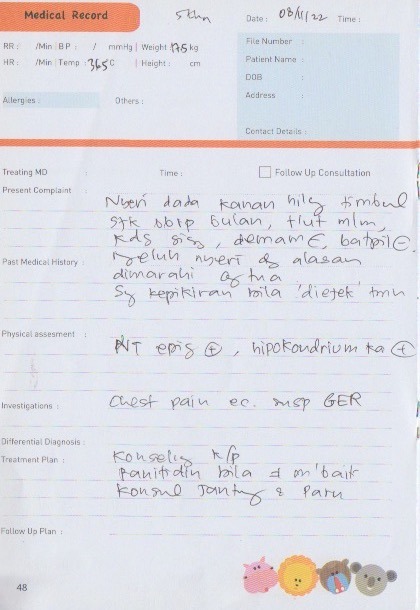 Medical Record
5 thn
Date : 08/11/22 Time :
RR : /Min BP : / mmHg Weight 17,5 kg
HR : /Min Temp : 36,5 C Height : cm
Allergies : Others :
File Number :
Patient Name :
DOB :
Address :
Contact Details :
Treating MD : Time : Follow Up Consultation
Present Complaint :
Nyeri dada kanan hilg timbul
sjk bbrp bulan,
demam batpil ⊖
Past Medical History :
ngeluh nyeri dg alasan
dimarahi tua
kepikiran bila 'diejek' tmn
Physical assesment :
NT epig ⊕, hipokondrium ka ⊕
Investigations :
Chest pain ec. susp GER
Differential Diagnosis :
Treatment Plan :
Konseling k/p
Ranitidin bila
Konsul Jantung & Paru
Follow Up Plan :
48